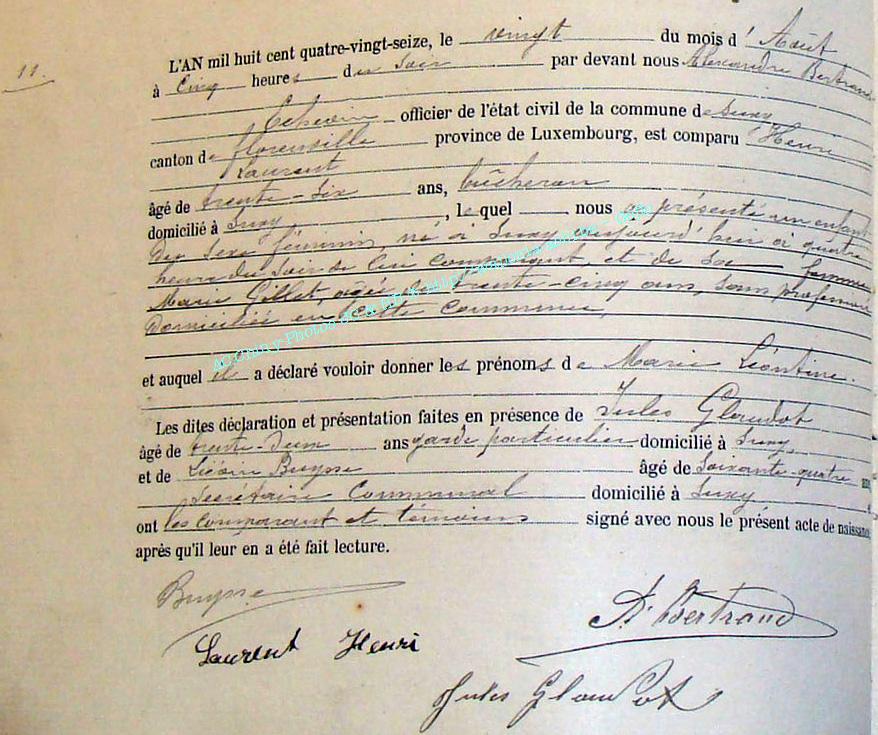 11.
L'AN mil huit cent quatre-vingt-seize, le vingt du mois d' Août
à Cinq heures du Soir par devant nous Alexandre Bertrand
Echevin officier de l'état civil de la commune de Suxy
canton de florenville province de Luxembourg, est comparu Henri
Laurent
âgé de trente-six ans, bûcheron
domicilié à Suxy, lequel nous a présenté un enfant
du sexe féminin, né à Suxy aujourd'hui à quatre
heures du Soir de lui comparant, et de sa femme
Marie Gillet, agée de trente-cinq ans, sans profession
domiciliée en cette commune,
et auquel il a déclaré vouloir donner les prénoms de Marie Léontine.
Les dites déclaration et présentation faites en présence de Jules Glaudot
âgé de trente-deux ans garde particulier domicilié à Suxy,
et de Buysse âgé de Soixante-quatre ans
Secrétaire Communal domicilié à Suxy
ont les comparant et témoins signé avec nous le présent acte de naissance
après qu'il leur en a été fait lecture.
Buysse
A. Bertrand
Laurent Henri
Jules Glaudot